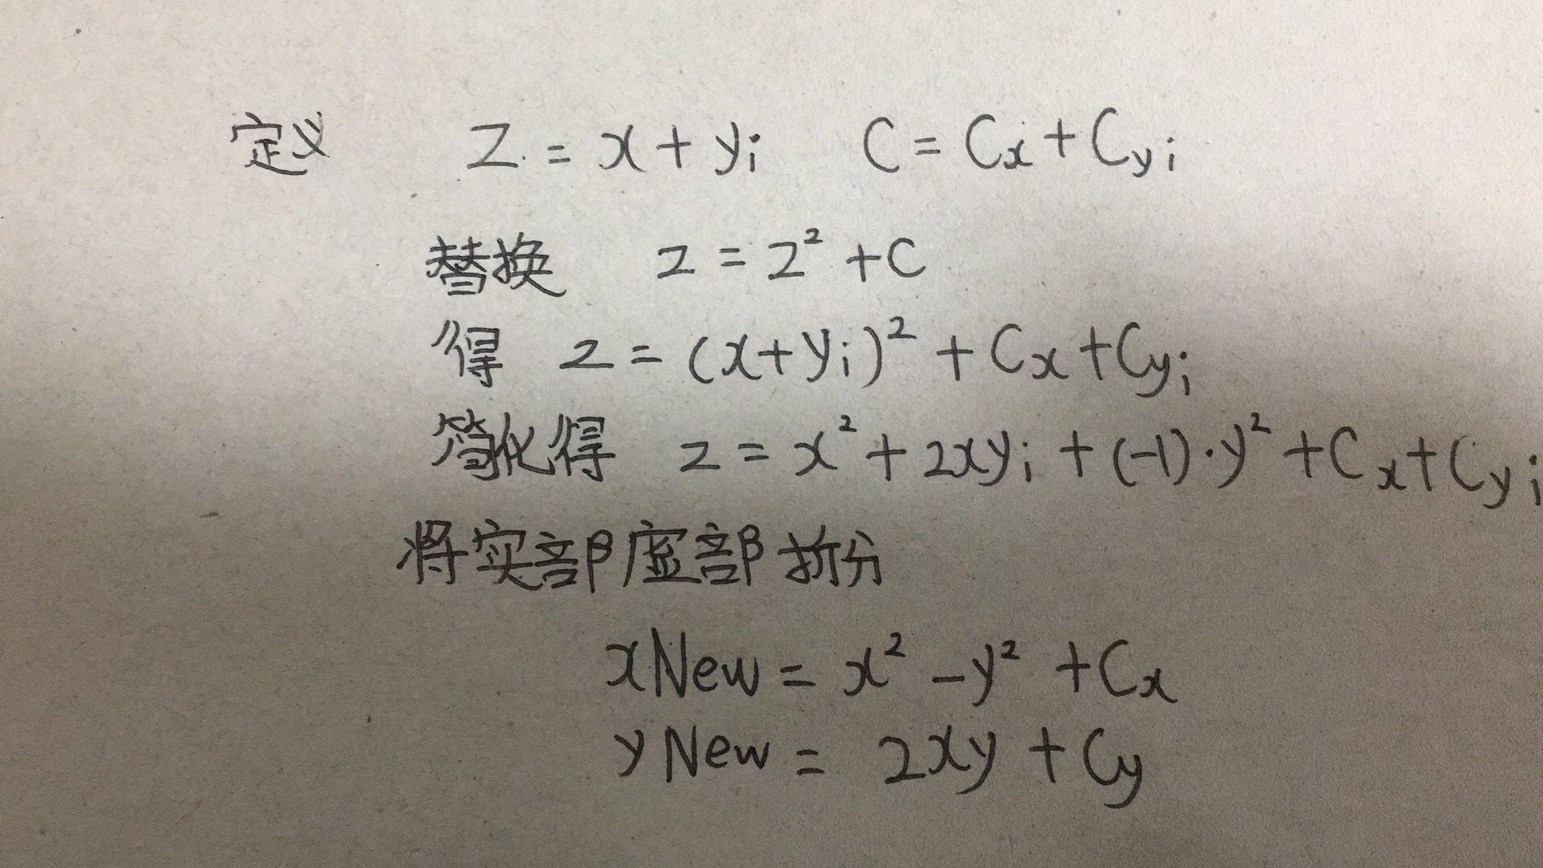 定义 Z = x + yi C = Cx + Cyi
替换 z = z² + C
得 z = (x+yi)² + Cx + Cyi
简化得 z = x² + 2xyi + (-1)·y² + Cx + Cyi
将实部虚部拆分
xNew = x² - y² + Cx
yNew = 2xy + Cy